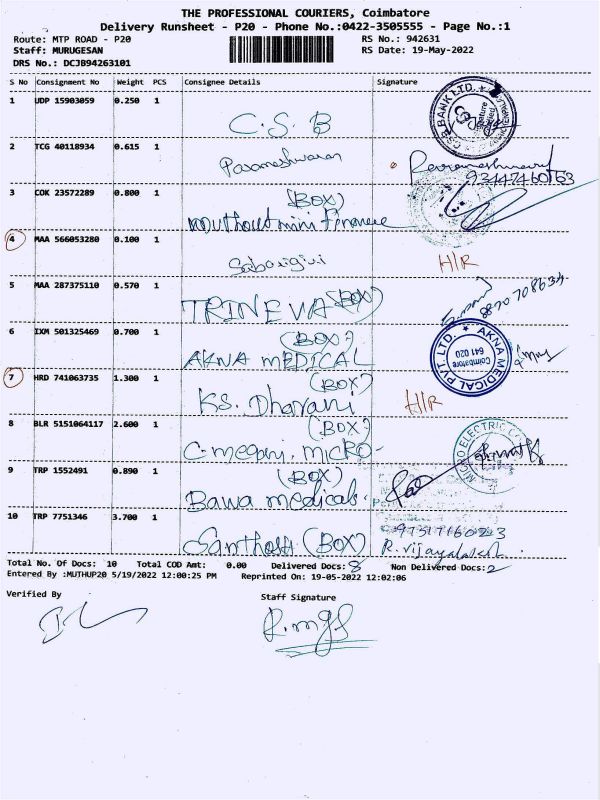 THE PROFESSIONAL COURIERS, Coimbatore
Delivery Runsheet - P20 - Phone No.:0422-3505555 - Page No.:1
Route: MTP ROAD - P20 RS No.: 942631
Staff: MURUGESAN RS Date: 19-May-2022
DRS No.: DCJB94263101
S No Consignment No Weight PCS Consignee Details Signature
1 UDP 15903059 0.250 1 C.S.B
CSB BANK LTD.
2 TCG 40118934 0.615 1 Parameshwaran
93447460163
3 COK 23572289 0.800 1 (BOX)
muthoot mini finance
4 MAA 566053280 0.100 1 Sabarigiri H/R
5 MAA 287375110 0.570 1 TRINEVA (BOX)
6 IXM 501325469 0.700 1 (BOX)
AKNA MEDICAL
AKNA MEDICAL PVT. LTD.
Coimbatore
641 020
7 HRD 741063735 1.300 1 (BOX)
KS. Dharani H/R
8 BLR 5151064117 2.600 1 (BOX)
C-megary. MICRO-
MICRO ELECTRIC
9 TRP 1552491 0.890 1 (BOX)
Bawa medicals.
10 TRP 7751346 3.700 1 Santhosh (BOX)
R. Vijayalaksh
Total No. Of Docs: 10 Total COD Amt: 0.00 Delivered Docs: 8 Non Delivered Docs: 2
Entered By :MUTHUP20 5/19/2022 12:00:25 PM Reprinted On: 19-05-2022 12:02:06
Verified By Staff Signature